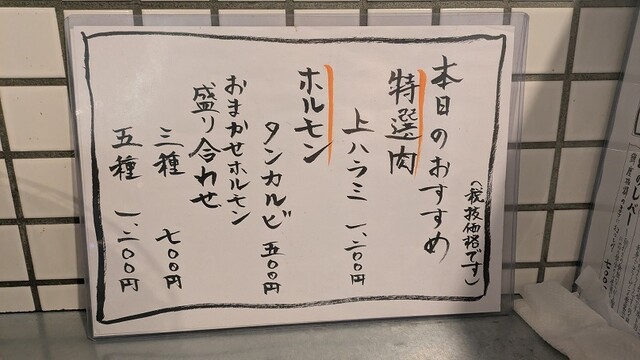 本日のおすすめ
(税抜価格です)
特選肉
上ハラミ 一、二〇〇円
ホルモン
タンカルビ 五〇〇円
おまかせホルモン
盛り合わせ
三種 七〇〇円
五種 一、二〇〇円